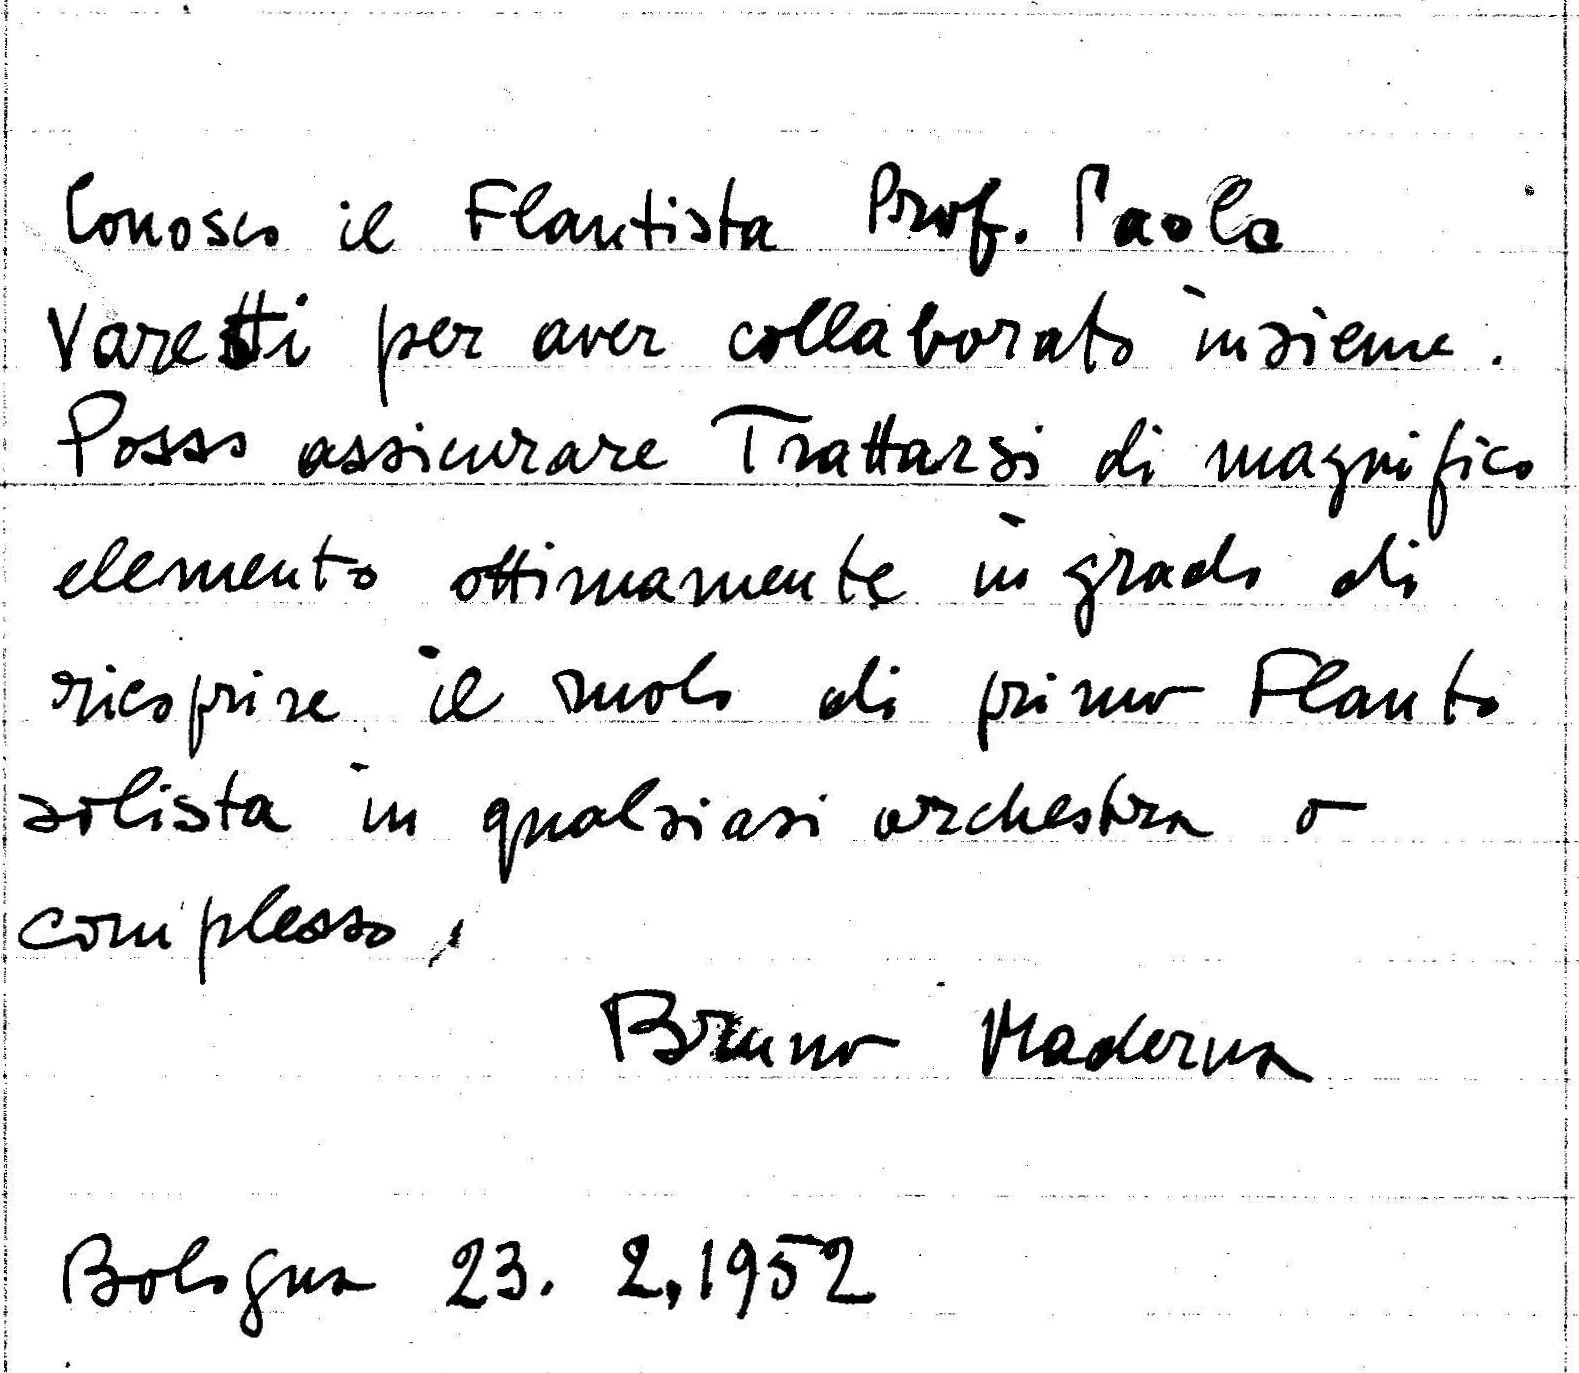 Conosco il Flautista Prof. Paolo
Varetti per aver collaborato insieme.
Posso assicurare Trattarsi di magnifico
elemento ottimamente in grado di
ricoprire il ruolo di primo Flauto
solista in qualsiasi orchestra o
complesso.
Bruno Maderna
Bologna 23. 2,1952